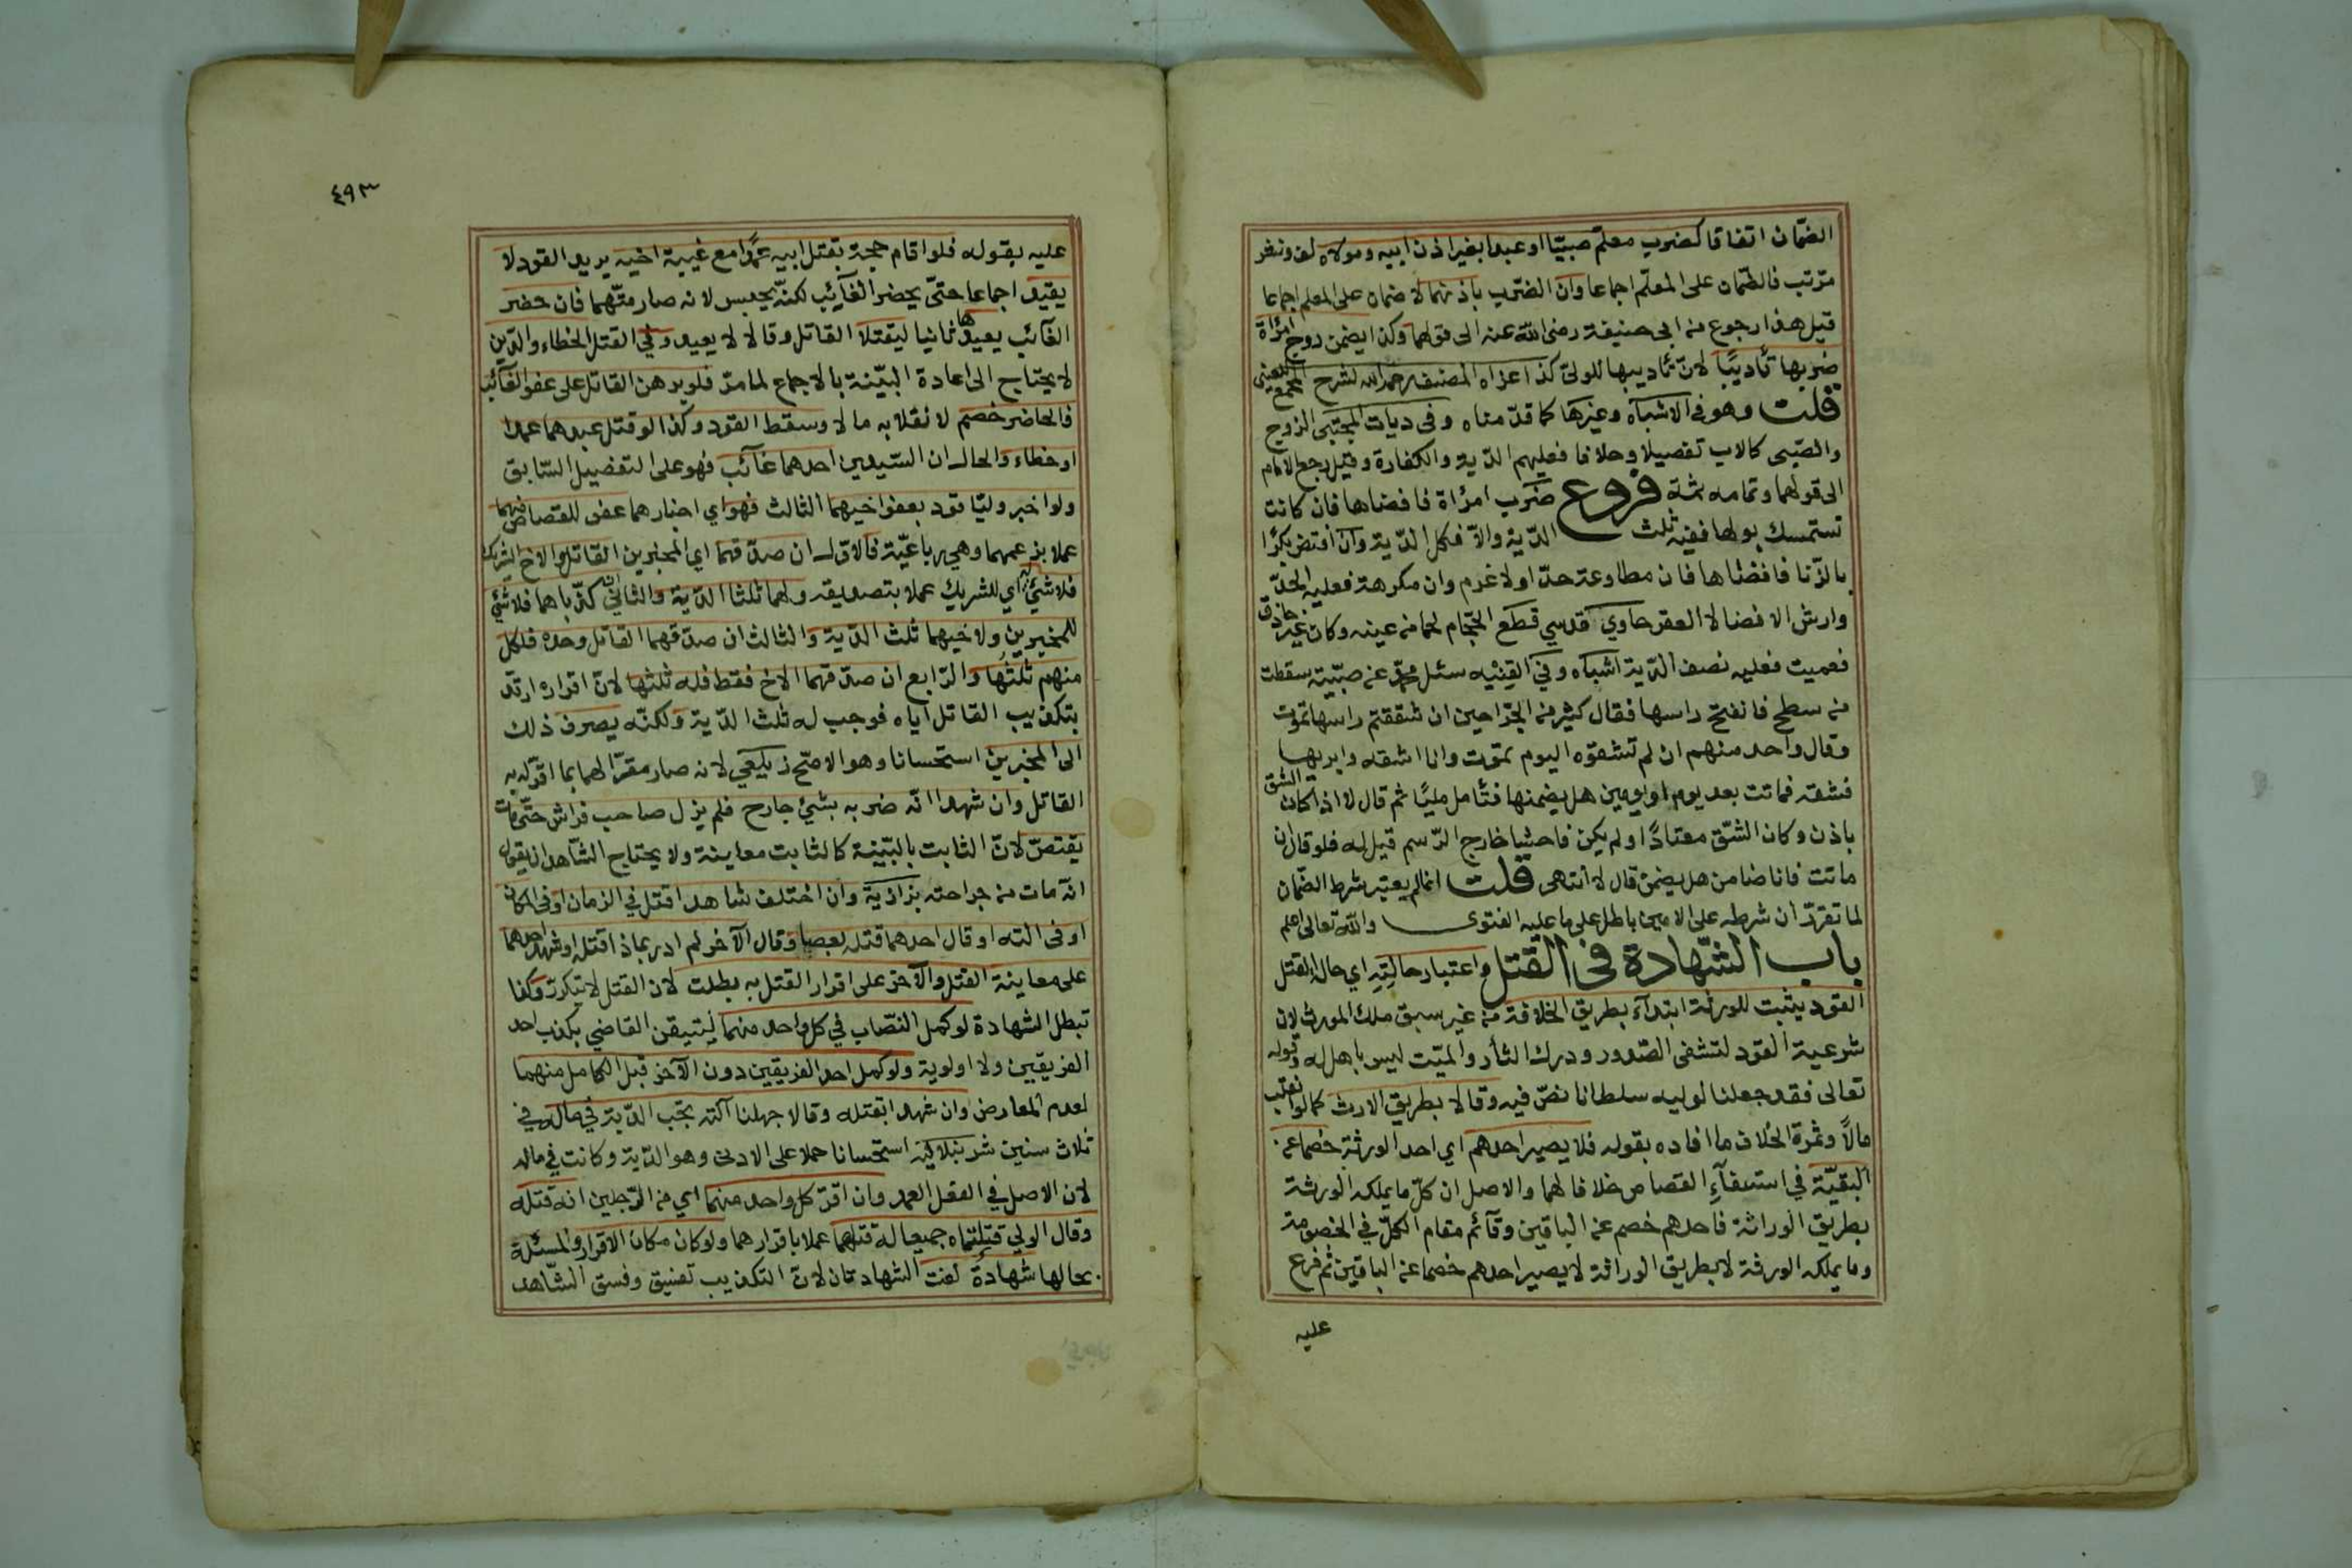 الضمّان اتفاقا كضرب معلّم صبيّا او عبدا بغير اذن ابيه ومولاه لف ونشر
مرتب فالضّمان على المعلّم اجماعا وان الضّرب باذنهما لا ضمان على المعلم اجماعا
قيل هذا رجوع من ابى حنيفة رضى الله عنه الى قولهما وكذا يضمن زوج امرأة
ضربها تأديبًا لانّ تأديبها للولىّ كذا عزاه المصنف رحمه الله لشرح المجمع للعينى
قلت وهو فى الاشباه وغيرها كما قدّمناه وفى ديات المجتبى الزوج
والصّبى كالاب تفصيلا وخلافا فعليهم الدّية والكفارة وقيل رجع الامام
الى قولهما وتمامه ثمة فروع ضرب امرأة فافضاها فان كانت
تستمسك بولها ففيه ثلث الدّية والاّ فكل الدّية وان افتض بكرًا
بالزّنا فافضاها فان مطاوعة حدّا ولا غرم وان مكرهة فعليه الحدّ
وارش الافضا لا العقر حاوي قدسي قطع الحجّام لحما من عينه وكان غير حاذق
فعميت فعليه نصف الدّية اشباه وفي القنيه سئل محمّد عن صبيّة سقطت
من سطح فانفتح راسها فقال كثير من الجرّاحين ان شققتم راسها تموت
وقال واحد منهم ان لم تشقوه اليوم تموت وانا اشقه وابريها
فشقه فماتت بعد يوم او يومين هل يضمنها فتأمل مليًا ثم قال لا اذا كان الشق
باذن وكان الشّق معتادًا ولم يكن فاحشا خارج الرّسم قيل له فلو قال ان
ماتت فانا ضامن هل يضمن قال لا انتهى قلت انما لم يعتبر شرط الضّمان
لما تقرّر ان شرطه على الامين باطل على ما عليه الفتوى والله تعالى اعلم
باب الشّهادة فى القتل واعتبار حالتِهِ اي حال القتل
القود يثبت للورثة ابتدآء بطريق الخلافة من غير سبق ملك المورث لان
شرعية القود لتشفى الصّدور ودرك الثأر والميّت ليس باهل له وقوله
تعالى فقد جعلنا لوليه سلطانا نصّ فيه وقالا بطريق الارث كما لو انقلب
مالاً وثمرة الخلاف ما افاده بقوله فلا يصير احدهم اي احد الورثة خصما عن
البقيّة في استيفآءِ القصاص خلافا لهما والاصل ان كلّ ما يملكه الورثة
بطريق الوراثة فاحدهم خصم عن الباقين وقآئم مقام الكلّ في الخصومة
وما يملكه الورثة لا بطريق الوراثة لا يصير احدهم خصما عن الباقين ثم فرع
عليه
٤٩٣
عليه بقوله فلو اقام حجة بقتل ابيه عمدًا مع غيبة اخيه يريد القود لا
يقيد اجماعا حتىّ يحضر الغآئب لكنّه يحبس لانه صار متّهما فان حضر
الغآئب يعيدها ثانيا ليقتلا القاتل وقالا لا يعيد وفي القتل الخطاء والدّين
لا يحتاج الى اعادة البيّنة بالاجماع لما مرّ فلو برهن القاتل على عفو الغآئب
فالحاضر خصم لانقلابه مالا وسقط القود وكذا لو قتل عبدهما عمدا
او خطاء والحال ان السّيدين احدهما غآئب فهو على التفصيل السّابق
ولو اخبر وليّا قود بعفو اخيهما الثالث فهو اي اخبارهما عفو للقصاص منهما
عملا بزعمهما وهي رباعيّة فالاوّل ان صدّقهما اي المخبرين القاتل والاخ الشريك
فلا شئ له اي للشريك عملا بتصديقه ولهما ثلثا الدّية والثانى ان كذّباهما فلا شئ
للمخبرين ولاخيهما ثلث الدّية والثالث ان صدّقهما القاتل وحده فلكل
منهم ثلثُها والرّابع ان صدّقهما الاخ فقط فله ثلثها لانّ اقراره ارتدّ
بتكذيب القاتل اياه فوجب له ثلث الدّية ولكنّه يصرف ذلك
الى المخبرين استحسانا وهو الاصّح زيلعي لانه صار مقرّا لهما بما اقرّ له به
القاتل وان شهدا انّه ضربه بشئ جارح فلم يزل صاحب فراش حتّى مات
يقتصّ لانّ الثابت بالبيّنة كالثابت معاينة ولا يحتاج الشّاهد ان يقول
انّه مات من جراحته بزازية وان اختلف شاهدا قتل في الزمان او فى المكان
او فى الته او قال احدهما قتله بعصا وقال الآخر لم ادر بماذا قتله او شهد احدهما
على معاينة القتل والآخر على اقرار القتل به بطلت لان القتل لا يتكرّر وكذا
تبطل الشهادة لو كمل النصّاب في كل واحد منهما ليتيقن القاضي بكذب احد
الفريقين ولا اولوية ولو كمل احد الفريقين دون الآخر قبل الكامل منهما
لعدم المعارض وان شهدا بقتله وقالا جهلنا آلته تجب الدّية في ماله في
ثلاث سنين شرنبلالية استحسانا حملا على الادنى وهو الدّية وكانت في ماله
لان الاصل في الفعل العمد وان اقرّ كل واحد منهما اي من الرّجلين انه قتله
وقال الولي قتلتماه جميعا له قتلهما عملا باقرارهما ولو كان مكان الاقرار والمسئلة
بحالها شهادةً لغت الشهادتان لانّ التكذيب تفسيق وفسق الشّاهد